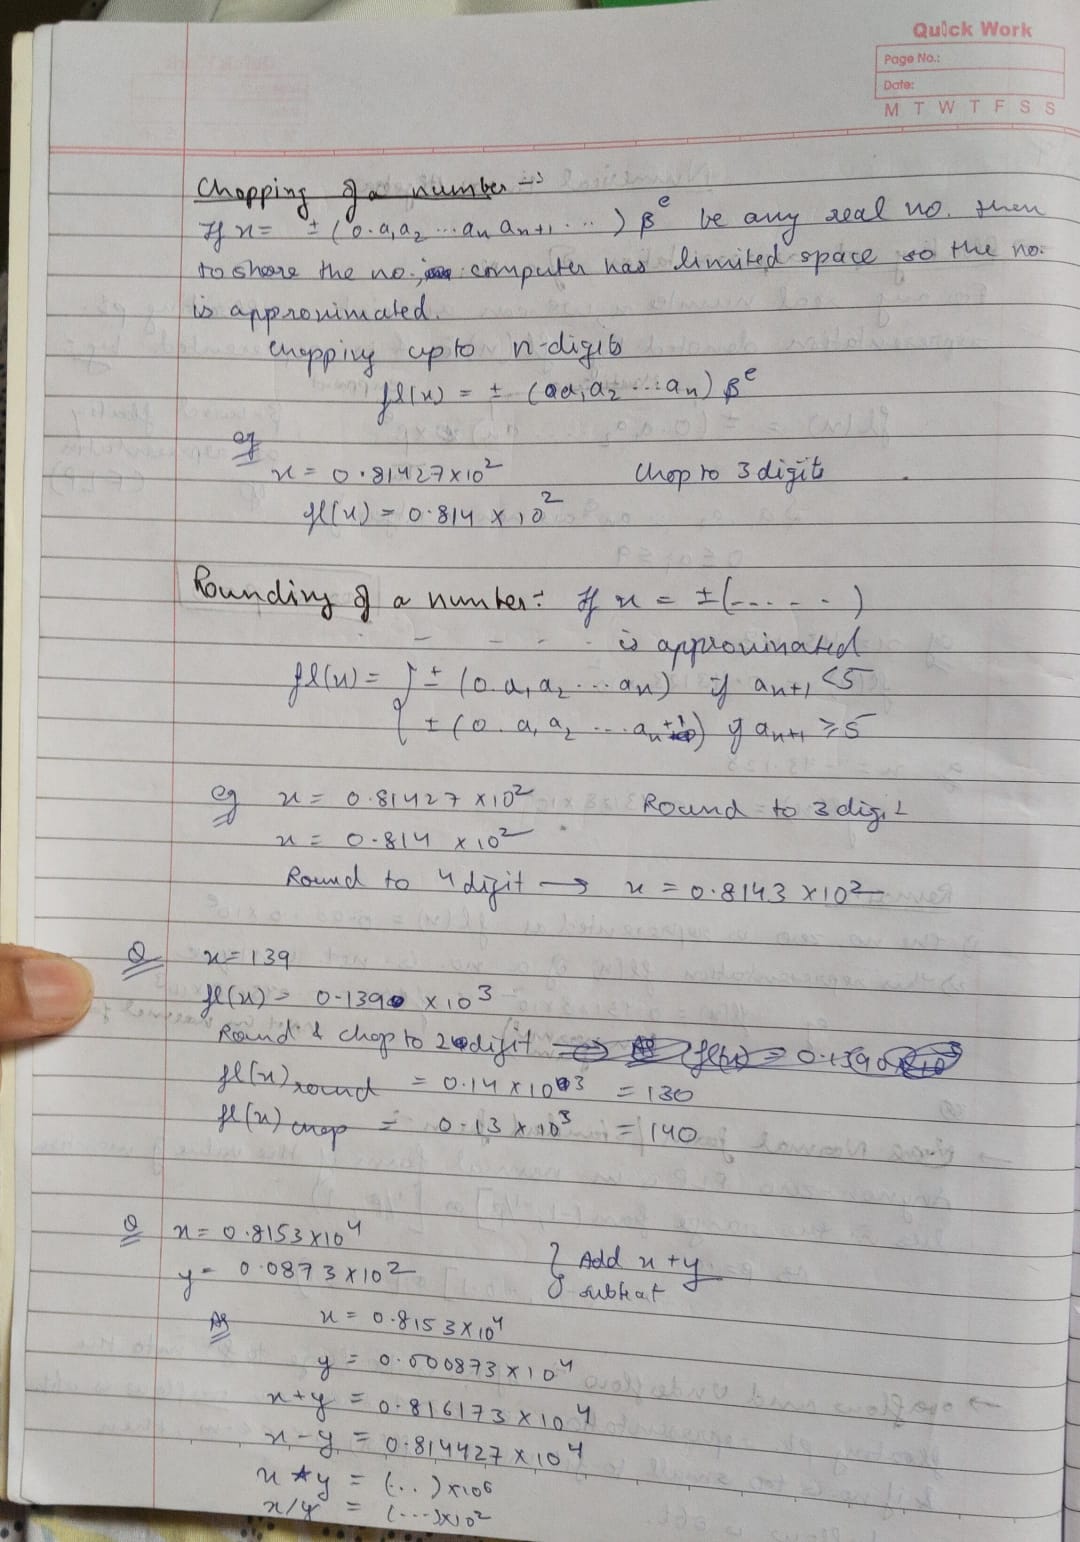 Quick Work
Page No.:
Date:
M T W T F S S
Chopping of a number →
If x = ± (0.a₁a₂ ... aₙ aₙ₊₁ ...) βᵉ be any real no. then
to share the no., computer has limited space so the no.
is approximated.
chopping up to n-digits
fl(x) = ± (0.a₁a₂ ... aₙ) βᵉ
eg
x = 0.81427 × 10² Chop to 3 digits
fl(x) = 0.814 × 10²
Rounding of a number:- If x = ± (- - - - - -)
- - - - - is approximated
fl(x) = { ± (0.a₁a₂ ... aₙ) if aₙ₊₁ < 5
{ ± (0.a₁a₂ ... aₙ+1) if aₙ₊₁ ≥ 5
eg x = 0.81427 × 10² Round to 3 digit
x = 0.814 × 10²
Round to 4 digit → x = 0.8143 × 10²
Q x = 139
fl(x) = 0.1390 × 10³
Round & chop to 2 digit
fl(x) round = 0.14 × 10³ = 130
fl(x) chop = 0.13 × 10³ = 140
Q x = 0.8153 × 10⁴
y = 0.0873 × 10² } Add x + y
subtrat
As x = 0.8153 × 10⁴
y = 0.000873 × 10⁴
x + y = 0.816173 × 10⁴
x - y = 0.814427 × 10⁴
x * y = (..) × 10⁶
x/y = (...) × 10²